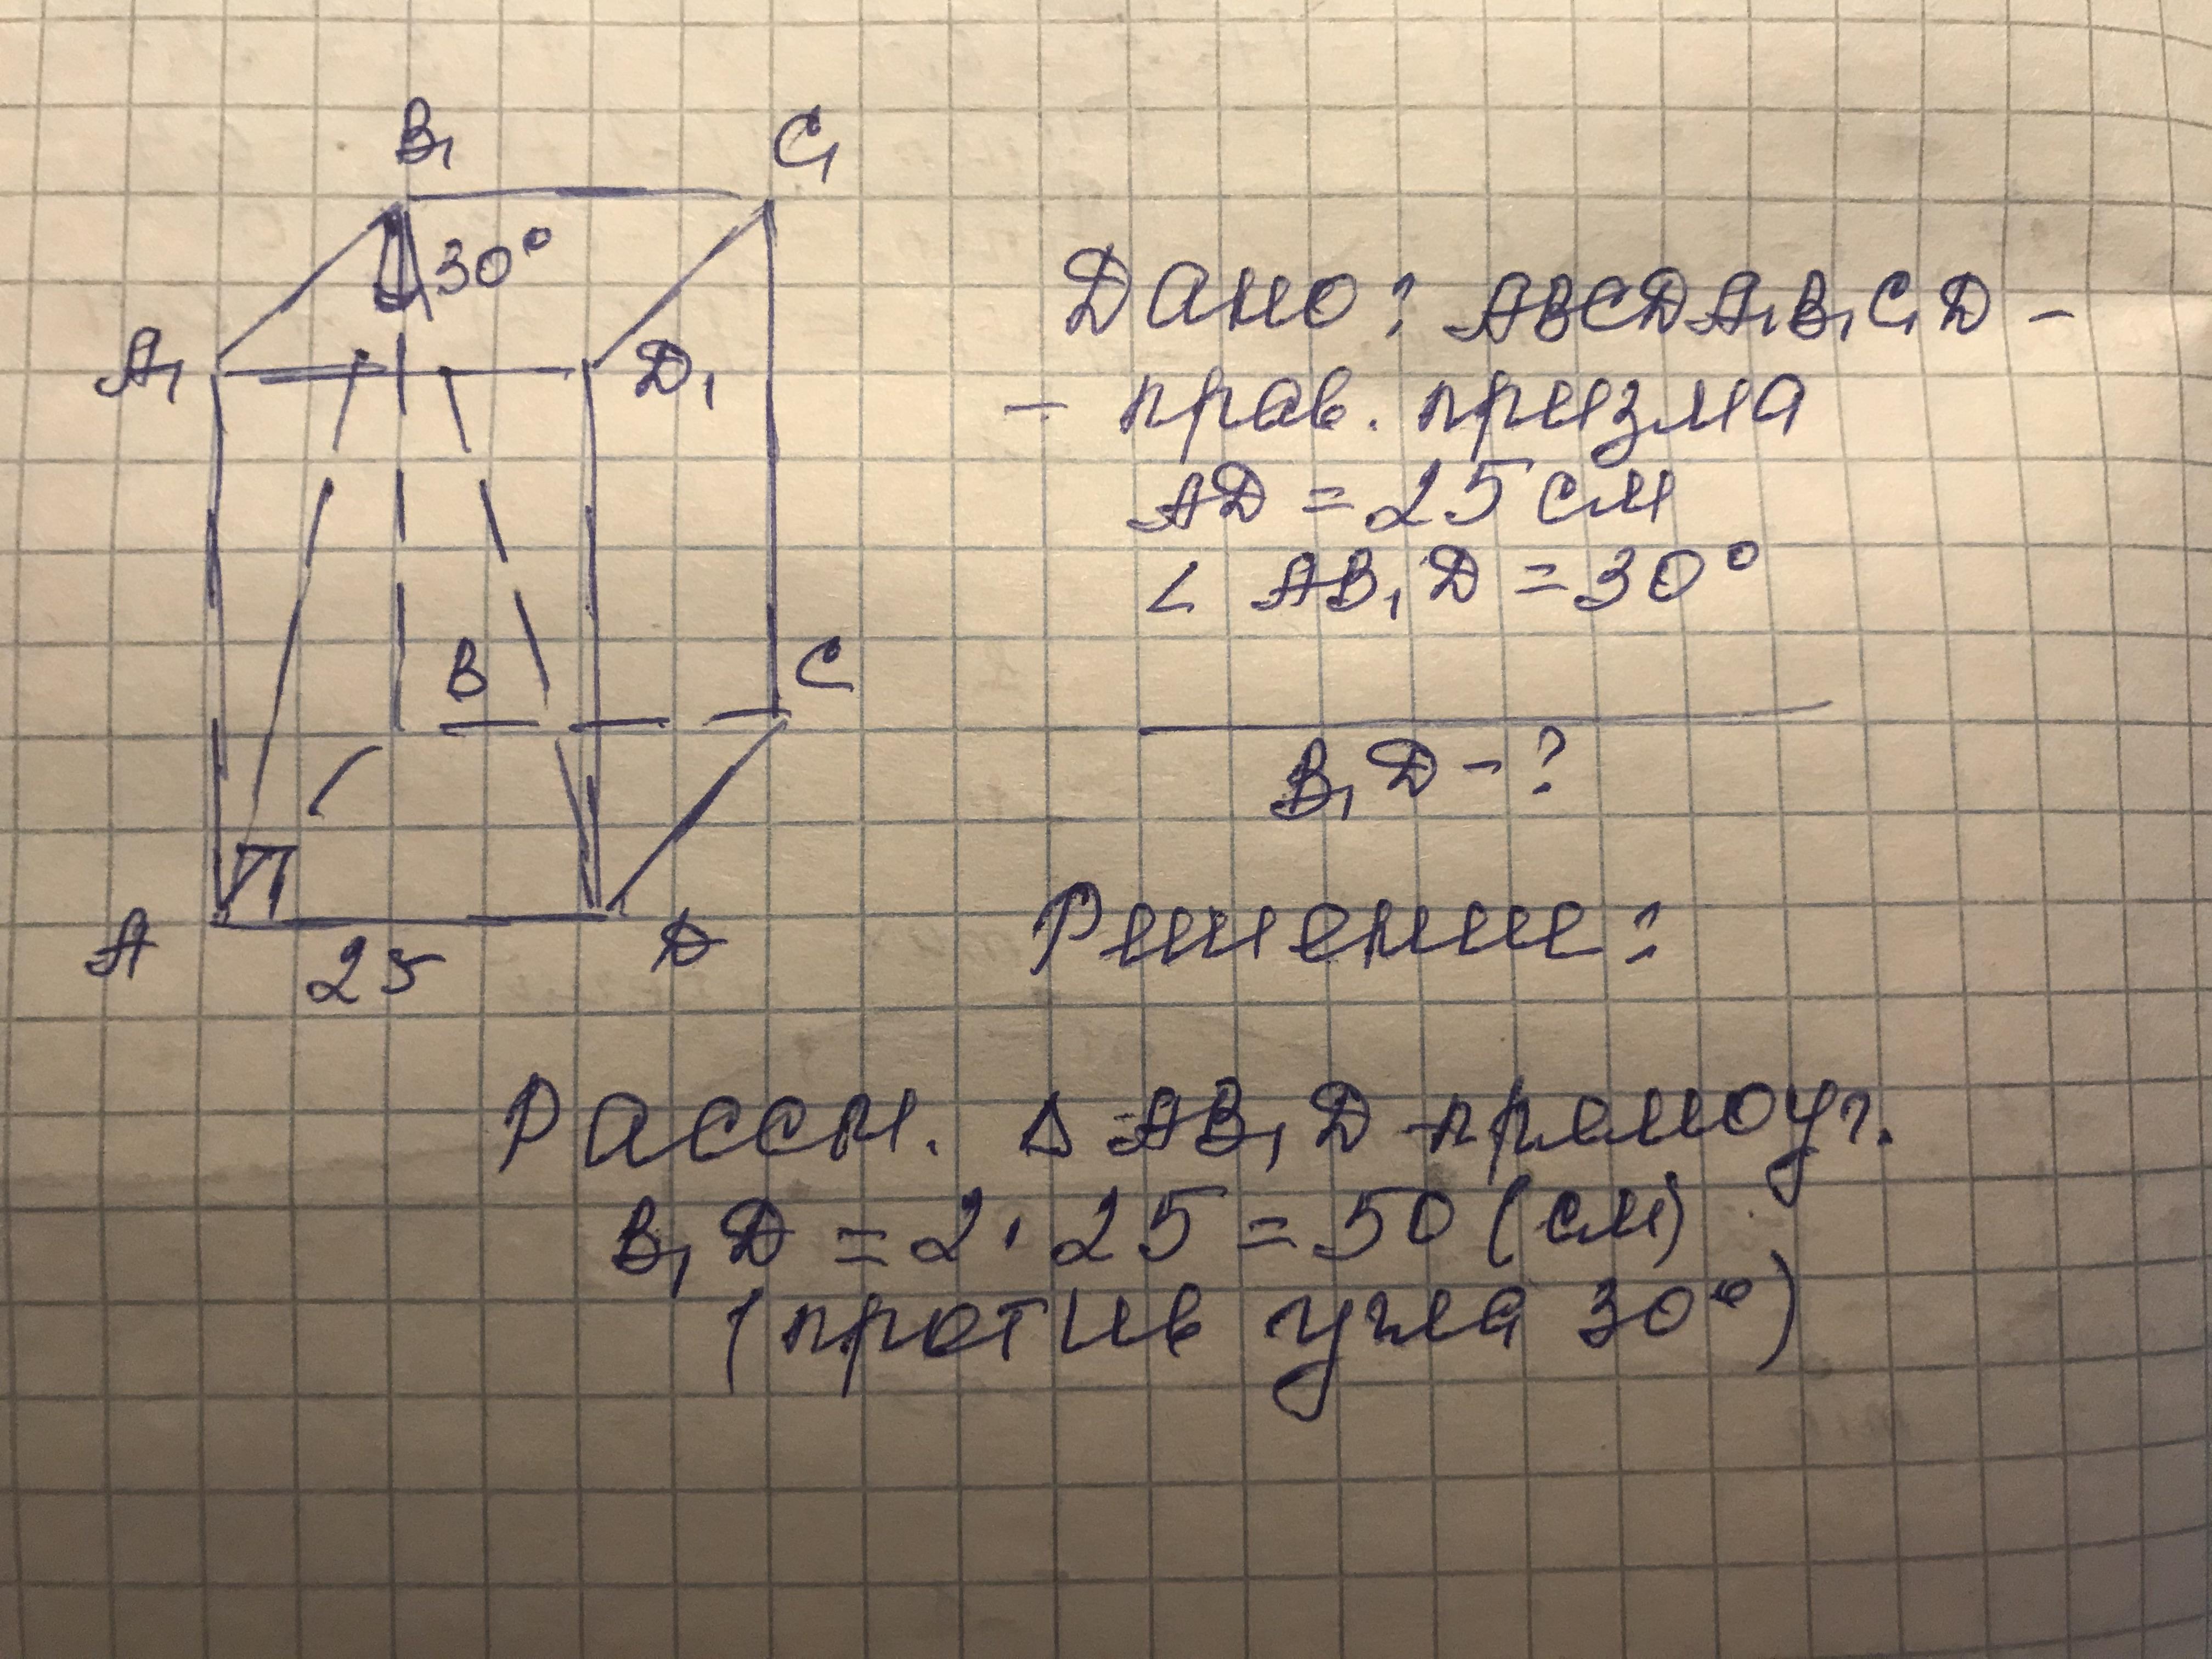 B₁
C₁
30°
A₁
D₁
B
C
A
25
D
Дано: ABCDA₁B₁C₁D –
– прав. призма
AD = 25 см
∠ AB₁D = 30°
B₁D – ?
Решение:
Рассм. Δ AB₁D – прямоуг.
B₁D = 2 · 25 = 50 (см)
(против угла 30°)